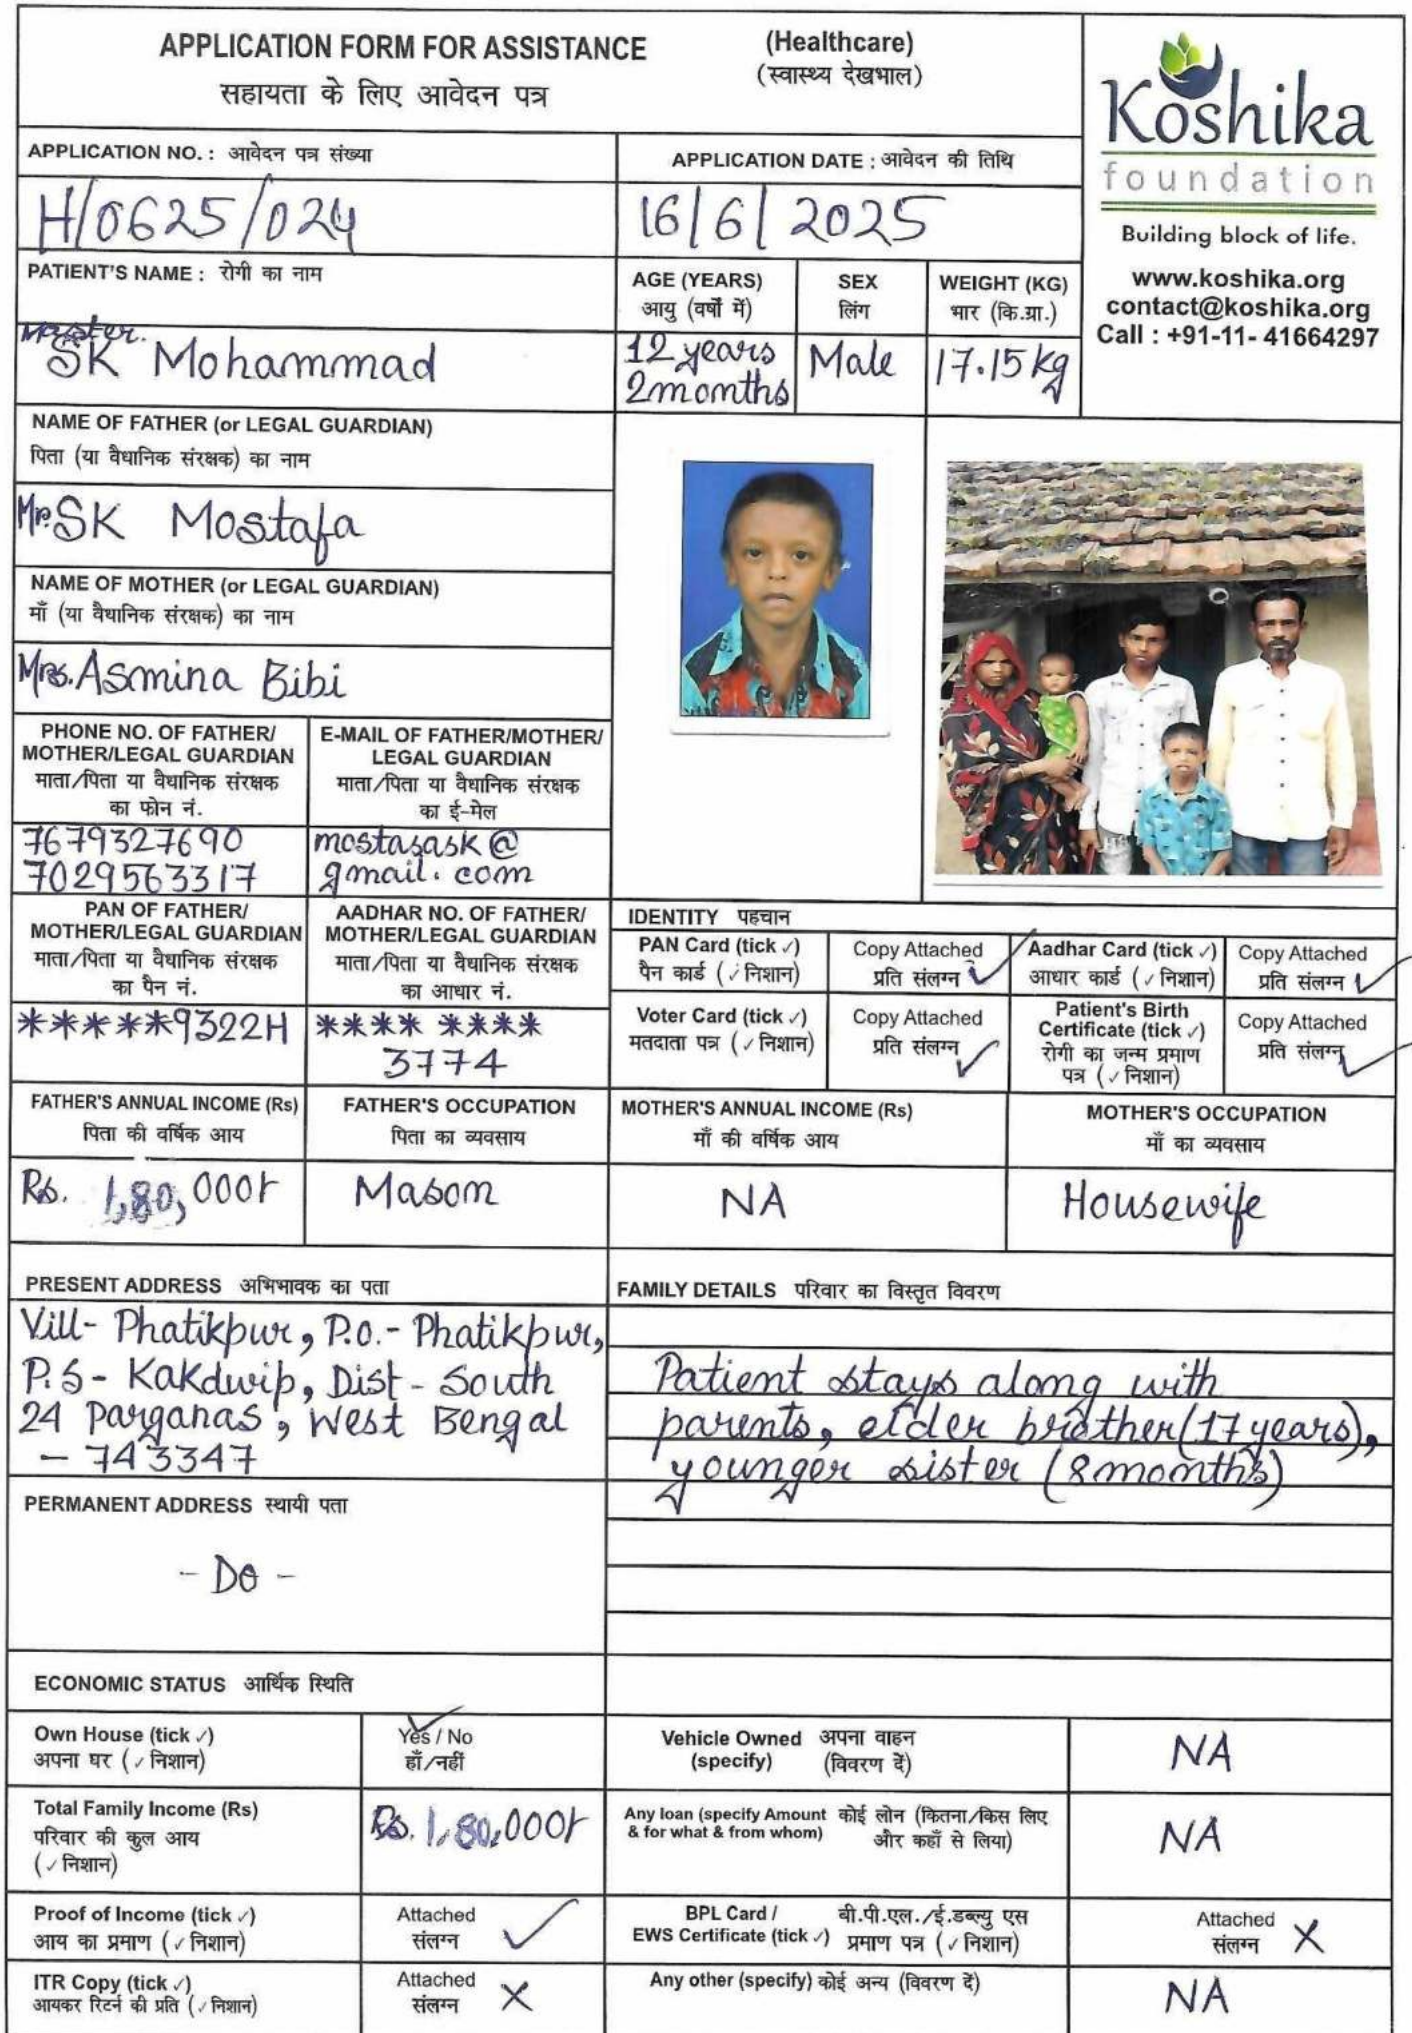 APPLICATION FORM FOR ASSISTANCE (Healthcare)
सहायता के लिए आवेदन पत्र (स्वास्थ्य देखभाल)
Koshika
foundation
Building block of life.
www.koshika.org
contact@koshika.org
Call : +91-11- 41664297
APPLICATION NO. : आवेदन पत्र संख्या
H/0625/024
APPLICATION DATE : आवेदन की तिथि
16/6/2025
PATIENT'S NAME : रोगी का नाम
Master.
SK Mohammad
AGE (YEARS)
आयु (वर्षों में)
12 years
2months
SEX
लिंग
Male
WEIGHT (KG)
भार (कि.ग्रा.)
17.15 kg
NAME OF FATHER (or LEGAL GUARDIAN)
पिता (या वैधानिक संरक्षक) का नाम
Mr. SK Mostafa
NAME OF MOTHER (or LEGAL GUARDIAN)
माँ (या वैधानिक संरक्षक) का नाम
Mrs. Asmina Bibi
PHONE NO. OF FATHER/
MOTHER/LEGAL GUARDIAN
माता/पिता या वैधानिक संरक्षक
का फोन नं.
7679327690
7029563317
E-MAIL OF FATHER/MOTHER/
LEGAL GUARDIAN
माता/पिता या वैधानिक संरक्षक
का ई-मेल
mostasask@
gmail.com
PAN OF FATHER/
MOTHER/LEGAL GUARDIAN
माता/पिता या वैधानिक संरक्षक
का पैन नं.
*****9322H
AADHAR NO. OF FATHER/
MOTHER/LEGAL GUARDIAN
माता/पिता या वैधानिक संरक्षक
का आधार नं.
**** ****
3774
IDENTITY पहचान
PAN Card (tick ✓)
पैन कार्ड (✓ निशान)
Copy Attached
प्रति संलग्न ✓
Aadhar Card (tick ✓)
आधार कार्ड (✓ निशान)
Copy Attached
प्रति संलग्न ✓
Voter Card (tick ✓)
मतदाता पत्र (✓ निशान)
Copy Attached
प्रति संलग्न ✓
Patient's Birth
Certificate (tick ✓)
रोगी का जन्म प्रमाण
पत्र (✓ निशान)
Copy Attached
प्रति संलग्न ✓
FATHER'S ANNUAL INCOME (Rs)
पिता की वर्षिक आय
Rs. 1,80,000/-
FATHER'S OCCUPATION
पिता का व्यवसाय
Mason
MOTHER'S ANNUAL INCOME (Rs)
माँ की वर्षिक आय
NA
MOTHER'S OCCUPATION
माँ का व्यवसाय
Housewife
PRESENT ADDRESS अभिभावक का पता
Vill- Phatikpur, P.O.- Phatikpur,
P.S- Kakdwip, Dist- South
24 Parganas, West Bengal
- 743347
FAMILY DETAILS परिवार का विस्तृत विवरण
Patient stays along with
parents, elder brother(17 years),
younger sister (8 months)
PERMANENT ADDRESS स्थायी पता
- Do -
ECONOMIC STATUS आर्थिक स्थिति
Own House (tick ✓)
अपना घर (✓ निशान)
Yes / No
हाँ/नहीं
Vehicle Owned अपना वाहन
(specify) (विवरण दें)
NA
Total Family Income (Rs)
परिवार की कुल आय
(✓ निशान)
Rs. 1,80,000/-
Any loan (specify Amount कोई लोन (कितना/किस लिए
& for what & from whom) और कहाँ से लिया)
NA
Proof of Income (tick ✓)
आय का प्रमाण (✓ निशान)
Attached
संलग्न ✓
BPL Card / बी.पी.एल./ई.डब्ल्यु एस
EWS Certificate (tick ✓) प्रमाण पत्र (✓ निशान)
Attached
संलग्न X
ITR Copy (tick ✓)
आयकर रिटर्न की प्रति (✓ निशान)
Attached
संलग्न X
Any other (specify) कोई अन्य (विवरण दें)
NA